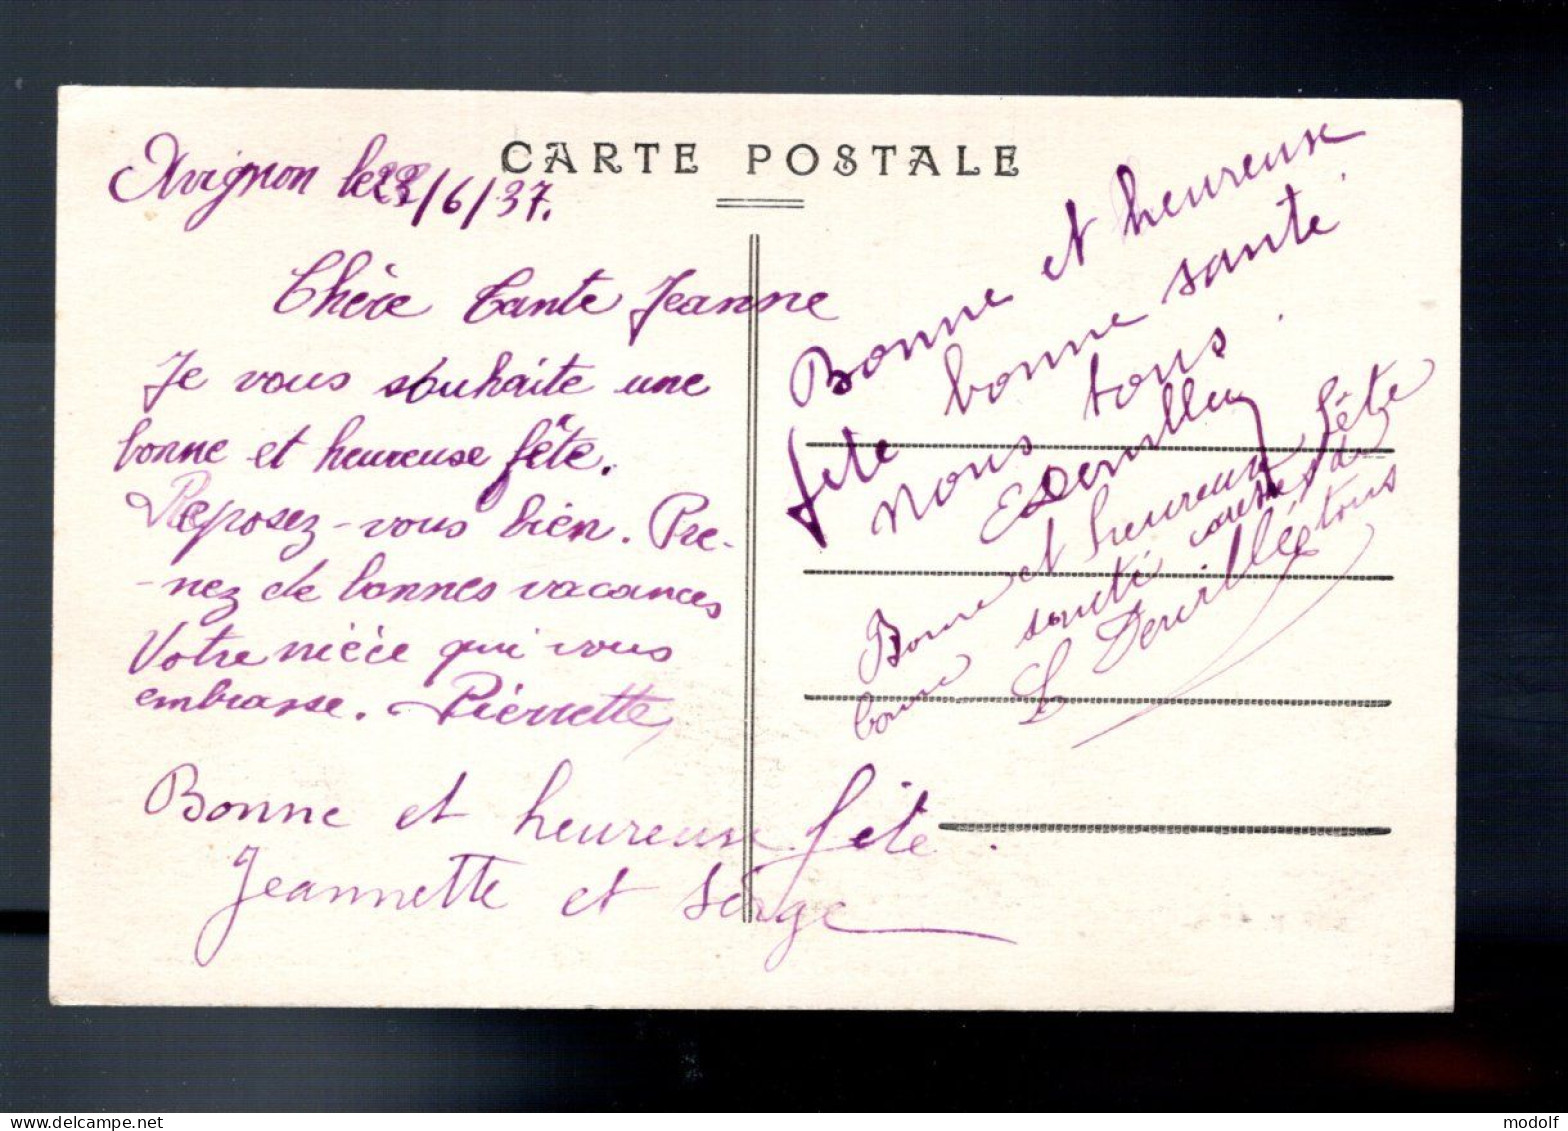 CARTE POSTALE
Avignon le 22/6/37.
Chère Tante Jeanne
Je vous souhaite une
bonne et heureuse fête.
Reposez-vous bien. Pre-
-nez de bonnes vacances
Votre nièce qui vous
embrasse. Pierrette
Bonne et heureuse fête.
Jeannette et Serge
Bonne et heureuse
fête bonne santé
nous tous.
Bonne et heureuse fête
bonne santé
tous
L Derville
www.delcampe.net
modolf